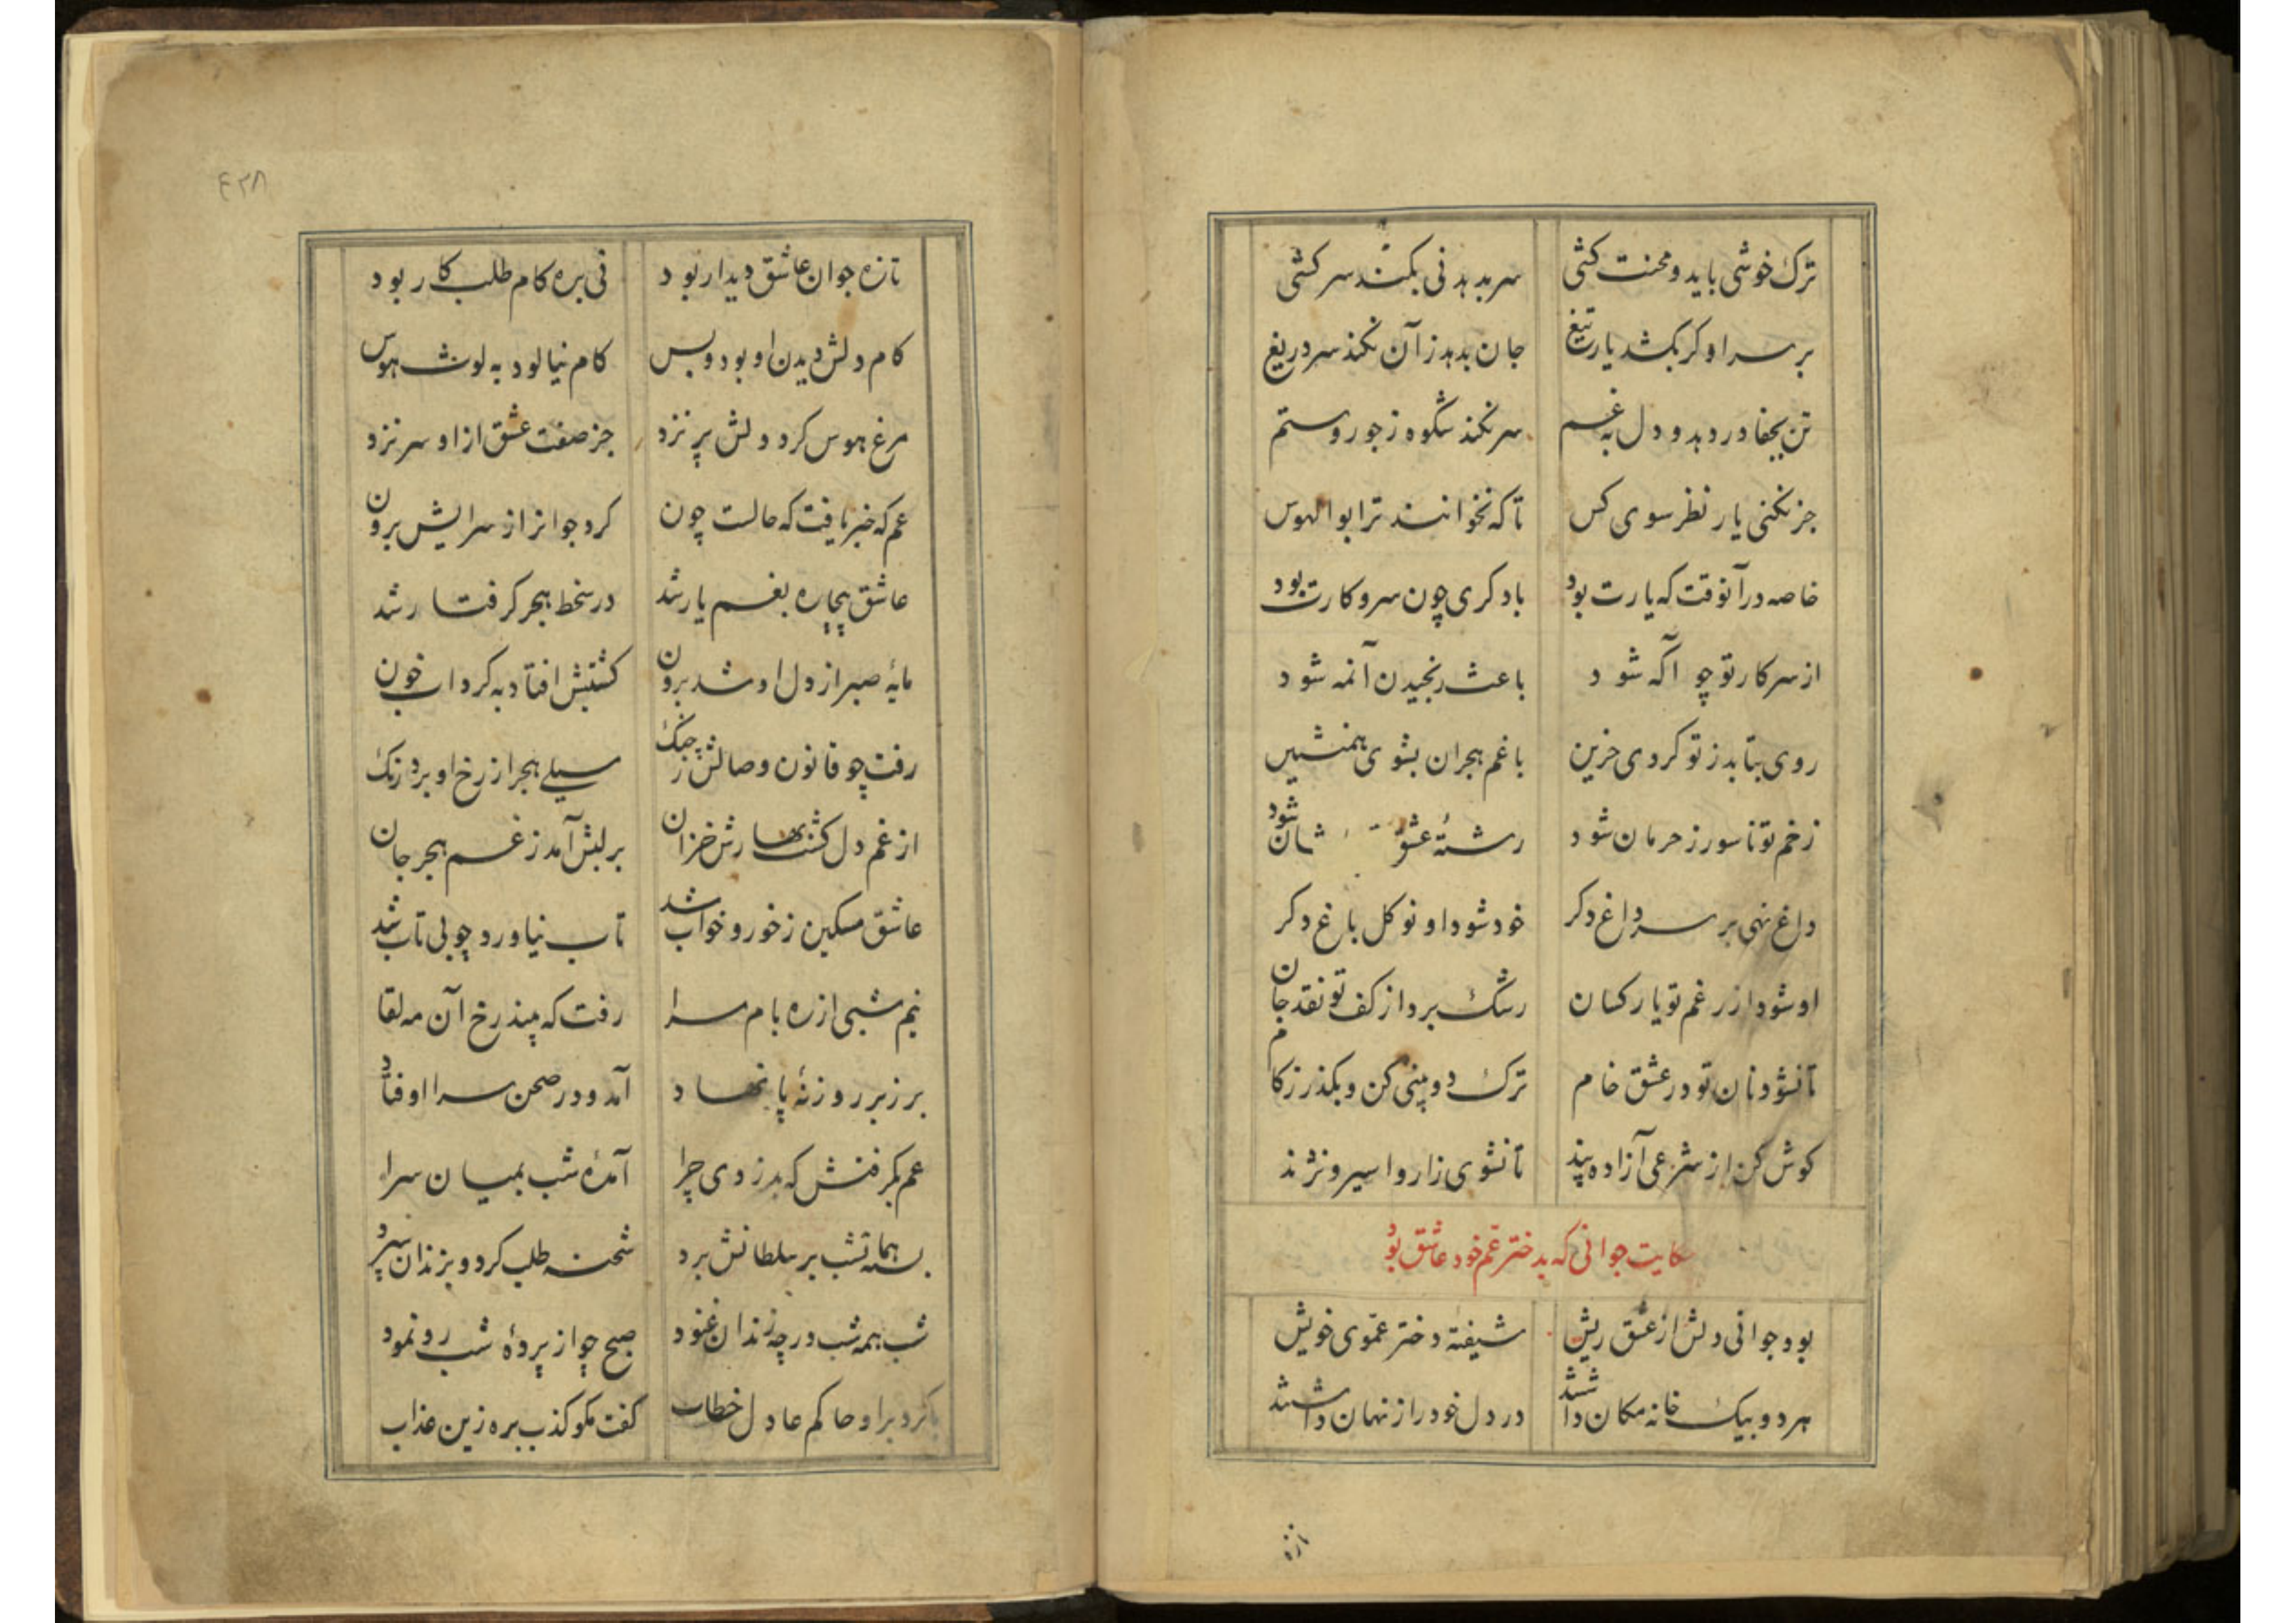 ترک خوشی باید و محنت کشی سر بدهد نی بکند سرکشی
بر سر او کر بکشد یار تیغ جان بدهد زآن نکند سر دریغ
تن بجفا در دهد و دل به غم سر نکند شکوه ز جور و ستم
جز نکنی یار نظر سوی کس تا که نخوانند ترا بوالهوس
خاصه در آنوقت که یارت بود با دکری چون سر و کارت بود
از سر کار تو چو آکه شود باعث رنجیدن آنمه شود
روی بتابد ز تو کردی حزین با غم هجران بشوی همنشین
زخم تو ناسور ز حرمان شود رشتهٔ عشق شان شود
داغ نهی بر سر داغ دکر خود شود او نوکل باغ دکر
او شود از رغم تو یار کسان رشک برد از کف تو نقد جان
تا نشود نان تو در عشق خام ترک دو بینی کن و بکذر ز کام
کوش کن از شرعی آزاده پند تا نشوی زار و اسیر و نژند
کایت جوانی که بدختر عم خود عاشق بود
بود جوانی دلش از عشق ریش شیفتهٔ دختر عموی خویش
هر دو بیک خانه مکان داشتند در دل خود راز نهان داشتند
تازه
۴۲۸
تازه جوان عاشق دیدار بود نی بره کام طلب کار بود
کام دلش دیدن او بود و بس کام نیالود به لوث هوس
مرغ هوس کرد دلش پر نزد جز صفت عشق از او سر نزد
عم که خبر یافت که حالست چون کرد جوانرا ز سرایش برون
عاشق بیچاره بغم یار شد در سخط هجر کرفتار شد
مایهٔ صبر از دل او شد برون کشتیش افتاد به کرداب خون
رفت چو قانون وصالش ز چنک سیلی هجر از رخ او برد رنک
از غم دل کشت بهارش خزان بر لبش آمد ز غم هجر جان
عاشق مسکین ز خور و خواب شد تاب نیاورد چو بی تاب شد
نیم شبی از ره بام سرا رفت که بیند رخ آن مه لقا
بر زبر روزنهٔ پا نهاد آمد و در صحن سرا اوفتاد
عم بکرفتش که بدزدی چرا آمدهٔ شب بمیان سرا
بسته همانشب بر سلطانش برد شحنه طلب کرد و بزندان سپرد
شب همه شب در چه زندان غنود صبح چو از پردهٔ شب رو نمود
کرد براو حاکم عادل خطاب کفت مکو کذب بره زین عذاب